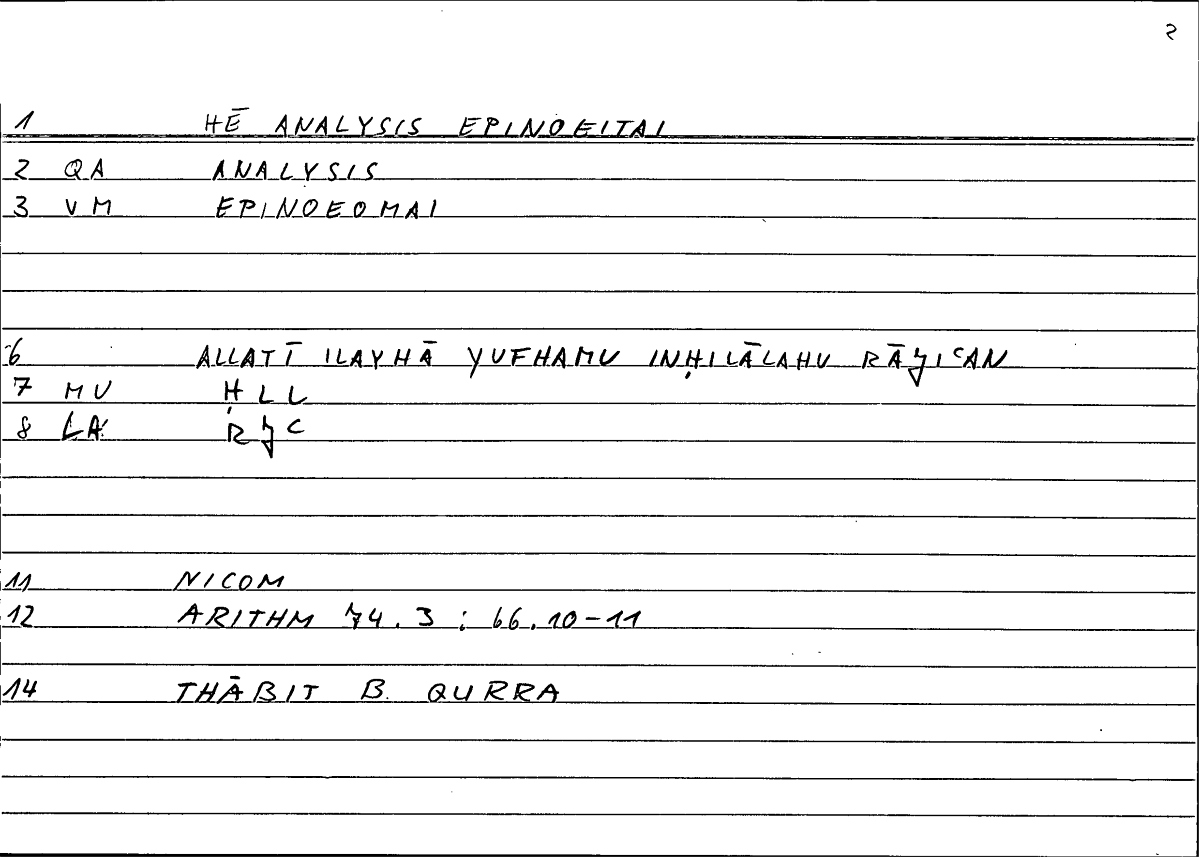 2
1 HĒ ANALYSIS EPINOEITAI
2 QA ANALYSIS
3 VM EPINOEOMAI
6 ALLATĪ ILAYHĀ YUFHAMU INḤILĀLAHU RĀJIʿAN
7 MU ḤLL
8 LA RJʿ
11 NICOM
12 ARITHM 74.3 ; 66.10-11
14 THĀBIT B. QURRA